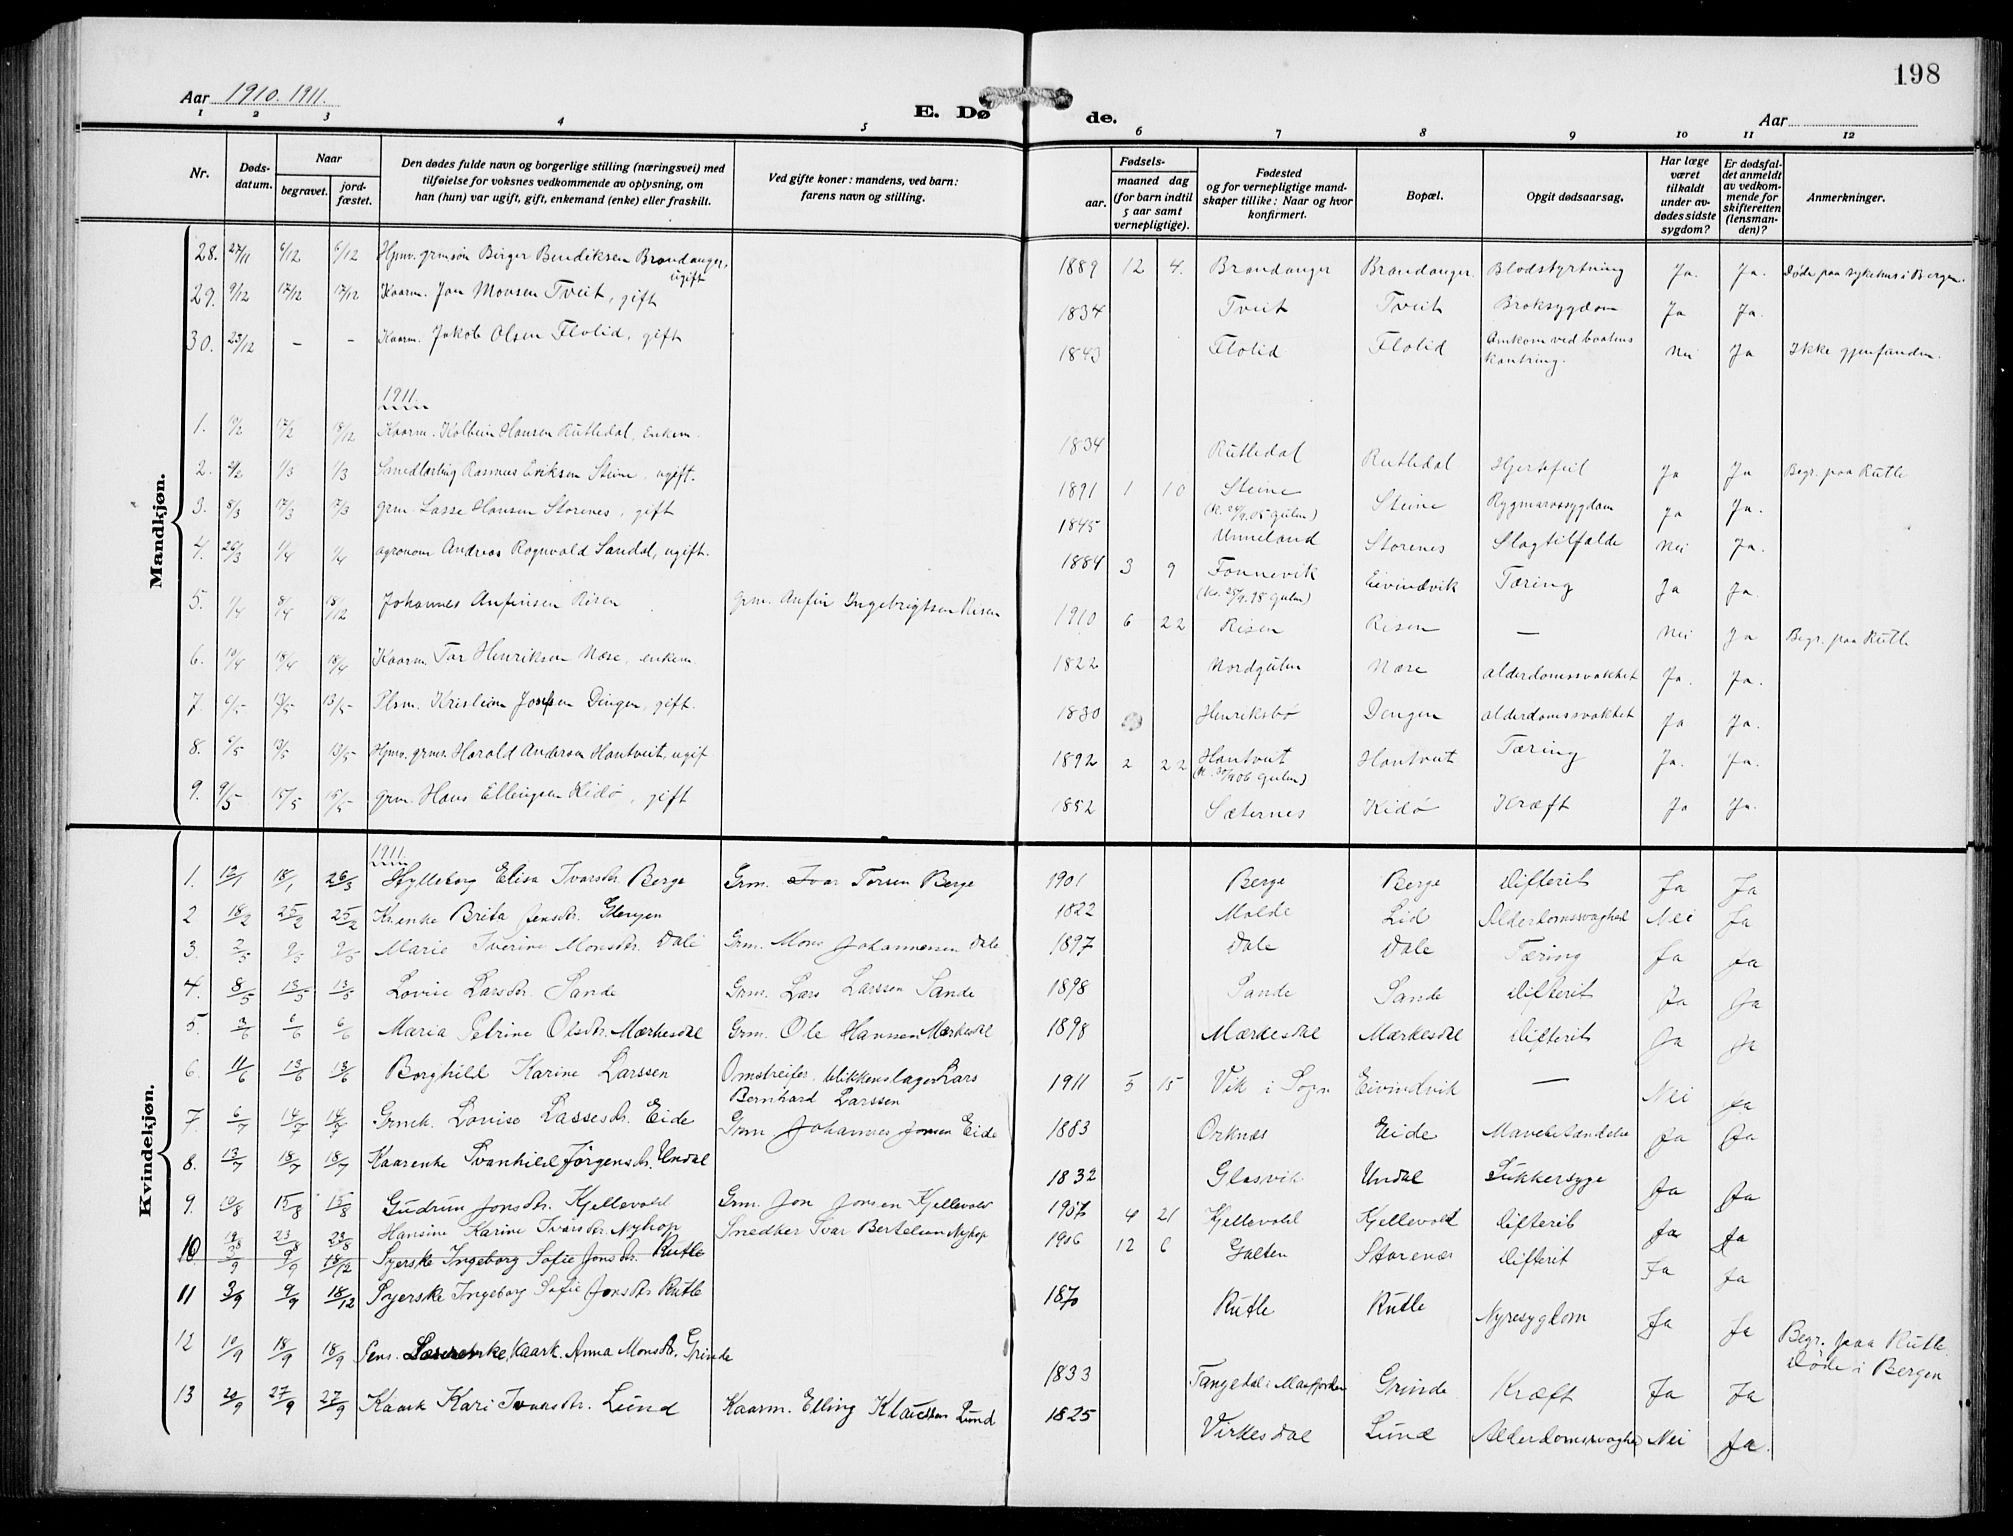 198
Aar 1910. 1911.
E. Dø de.
Aar
1 2 3 4 5 6 7 8 9 10 11 12
Nr.
Døds-datum.
Naar
begravet.
jord-fæstet.
Den dødes fulde navn og borgerlige stilling (næringsvei) med
tilføielse for voksnes vedkommende av oplysning, om
han (hun) var ugift, gift, enkemand (enke) eller fraskilt.
Ved gifte koner: mandens, ved barn:
farens navn og stilling.
Fødsels-
aar.
maaned dag
(for barn indtil
5 aar samt
vernepligtige).
Fødested
og for vernepligtige mand-
skaper tillike: Naar og hvor
konfirmert.
Bopæl.
Opgit dødsaarsag.
Har læge
været
tilkaldt
under av-
dødes sidste
sygdom?
Er dødsfal-
det anmeldt
av vedkom-
mende for
skifteretten
(lensman-
den)?
Anmerkninger.
Mandkjøn.
28. 27/11 6/12 6/12 Hjmv. grmsøn Birger Bendiksen Brandanger, ugift 1889 12 4. Brandanger Brandanger. Blodstyrtning Ja. Ja. Døde paa sykehus i Bergen.
29. 9/12 17/12 17/12 Kaarm. Jon Monsen Tveit, gift 1834 Tveit Tveit Broksygdom Ja Ja.
30. 23/12 – – Kaarm. Jakob Olsen Flolid, gift 1843 Flolid Flolid Omkom ved baatens kantring. Nei Ja Ikke gjenfunden.
1911.
1. 17/2 18/12 Kaarm. Kolbein Hansen Rutledal, enkem. 1834 Rutledal Rutledal Hjertefeil Ja Ja Begr. paa Rutle
2. 1/3 1/3 Smedlærling Rasmus Eriksen Steine, ugift. 1891 1 10 Steine (K. 24/9.05 Gulen) Steine Rygmarvssygdom Ja Ja.
3. 8/3 17/3 17/3 Grm. Lasse Hansen Storenes, gift 1845 Unneland Storenes Slagtilfælde Nei Ja.
4. 26/3 1/4 1/4 Agronom Andreas Rognvald Sandal, ugift. 1884 3 9 Fonnevik (K. 25/9.98 Gulen) Eivindvik Tæring Ja Ja.
5. 1/4 8/4 18/12 Johannes Anfinsen Risen Grm. Anfin Ingebrigtsen Risen 1910 6 22 Risen Risen — Nei Ja Begr. paa Rutle
6. 10/4 18/4 18/4 Kaarm. Tor Henriksen Næse, enkem. 1822 Nordgulen Næse Alderdomssvakhet Ja. Ja.
7. 6/5 13/5 13/5 Plsm. Kristian Josefsen Dingen, gift. 1830 Henriksbø Dengen Alderdomssvakhet Ja Ja.
8. 6/5 13/5 13/5 Hjmv. grms. Harald Andersen Hantveit, ugif 1892 2 22 Hantveit Hantveit Tæring Ja. Ja.
9. 9/5 15/5 15/5 Grm. Hans Ellingsen Kidø, gift 1852 Sæternes Kidø Kræft Ja Ja.
Kvindekjøn.
1911.
1. 12/1 18/1 26/3 Hylleborg Elisa Ivarsdr. Berge Grm. Ivar Torsen Berge 1901 Berge Berge Difterit Ja Ja
2 18/2 25/2 25/2 Kr.enke Brita Jensdr. Glenjen 1822 Molde Lid Alderdomssvaghed Nei Ja
3. 2/5 9/5 9/5 Marie Iverine Monsdr. Dale Grm. Mons Johannessen Dale 1897 Dale Dale Tæring Ja Ja
4. 8/5 13/5 13/5 Lovise Larsdr. Sande Grm. Lars Larssen Sande 1898 Sande Sande Difterit Ja Ja
5. 2/6 6/6 6/6 Maria Petrine Olsdr. Mærkesdal Grm. Ole Hanssen Mærkesdal 1898 Mærkesdal Mærkesdal Difterit Ja Ja
6. 11/6 13/6 13/6 Borghild Karine Larssen Omstreifer, blikkenslager Lars Bernhard Larssen 1911 5 15 Vik i Sogn Eivindvik — Nei Ja
7. 6/7 14/7 14/7 Grmk. Lovise Lassesdr. Eide Grm Johannes Jonsen Eide 1883 Orknæs Eide Mavebetændelse Ja Ja
8. 13/7 18/7 18/7 Kaarenke Svanhild Jørgensdr. Undal 1832 Glosvik Undal Sukkersyge Ja Ja
9. 10/8 15/8 15/8 Gudrun Jonsdr. Kjellevold Grm. Jon Jonsen Kjellevold 1907 4 21 Kjellevold Kjellevold Difterit Ja Ja
10 19/8 23/8 23/8 Hansine Karine Ivarsdr. Nyhop Snedker Ivar Bertelsen Nyhop 1906 12 6 Galten Storenæs Difterit Ja Ja
3/9 9/9 18/12 Syerske Ingeborg Sofie Jonsdr. Rutle
11 3/9 9/9 18/12 Syerske Ingeborg Sofie Jonsdr Rutle 1870 Rutle Rutle Nyresygdom Ja Ja Begr. paa Rutle.
12 10/9 18/9 18/9 Pens. Kaark. Anna Monsdr. Grinde 1833 Tangedal i Masfjorden Grinde Kræft Ja Ja Døde i Bergen
13 20/9 27/9 27/9 Kaark Kari Ivarsdr. Lund Kaarm. Elling Klausen Lund 1825 Virkesdal Lund Alderdomssvaghe Nei Ja.